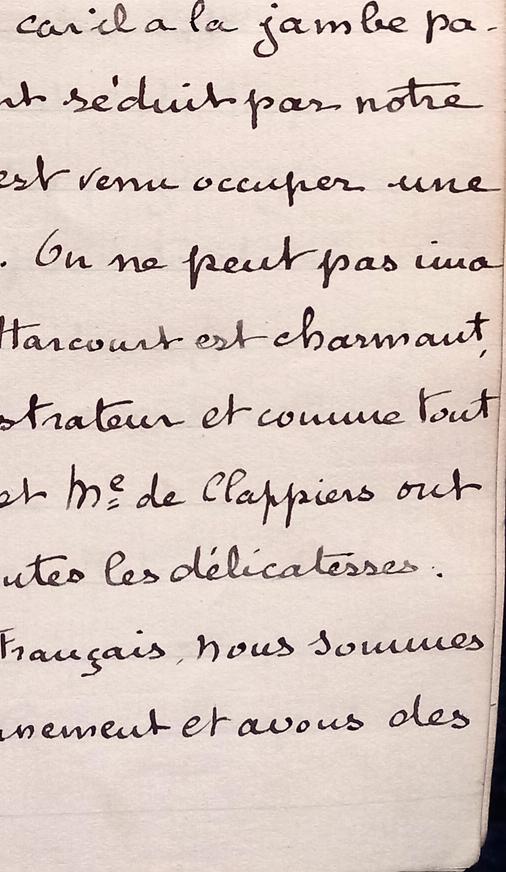 car il a la jambe pa-
nt séduit par notre
est venu occuper une
. On ne peut pas ima
Harcourt est charmant,
strateur et comme tout
et Mᵉ de Clappiers ont
utes les délicatesses.
Français, nous sommes
nnement et avons des